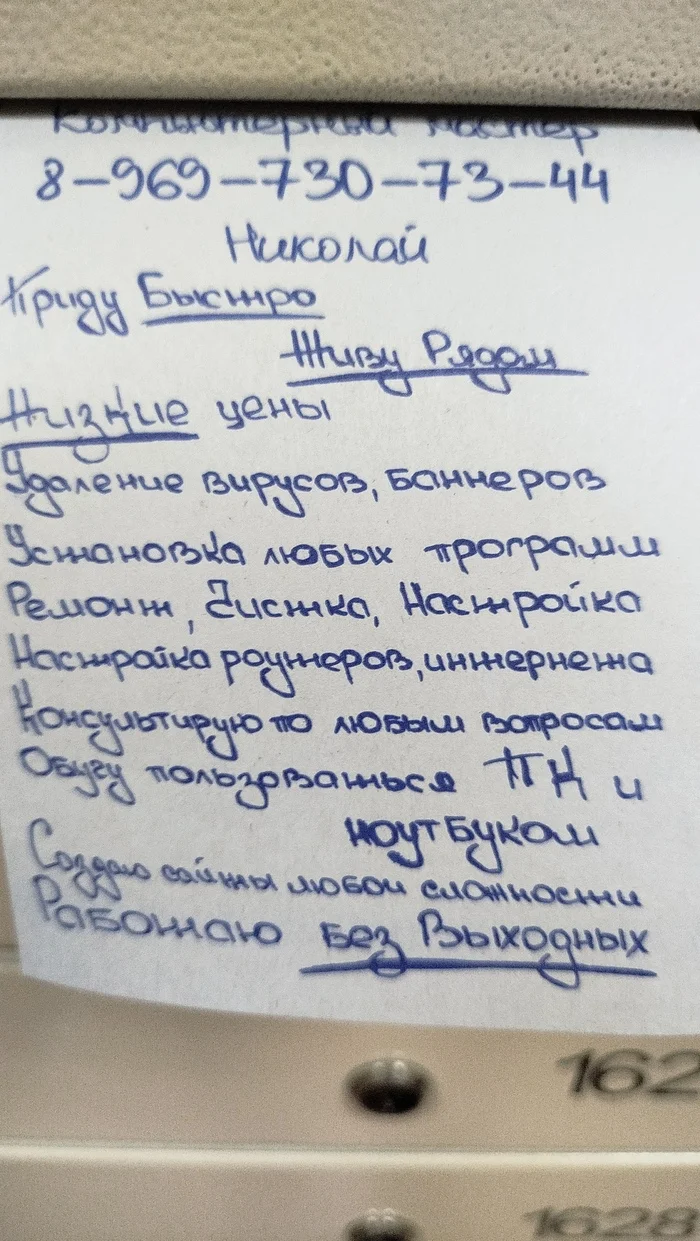 Компьютерный мастер
8-969-730-73-44
Николай
Приду Быстро
Живу Рядом
Низкие цены
Удаление вирусов, баннеров
Установка любых программ
Ремонт, Чистка, Настройка
Настройка роутеров, интернета
Консультирую по любым вопросам
Обучу пользоваться ПК и
ноутбуком
Создаю сайты любой сложности
Работаю Без Выходных
162
1628